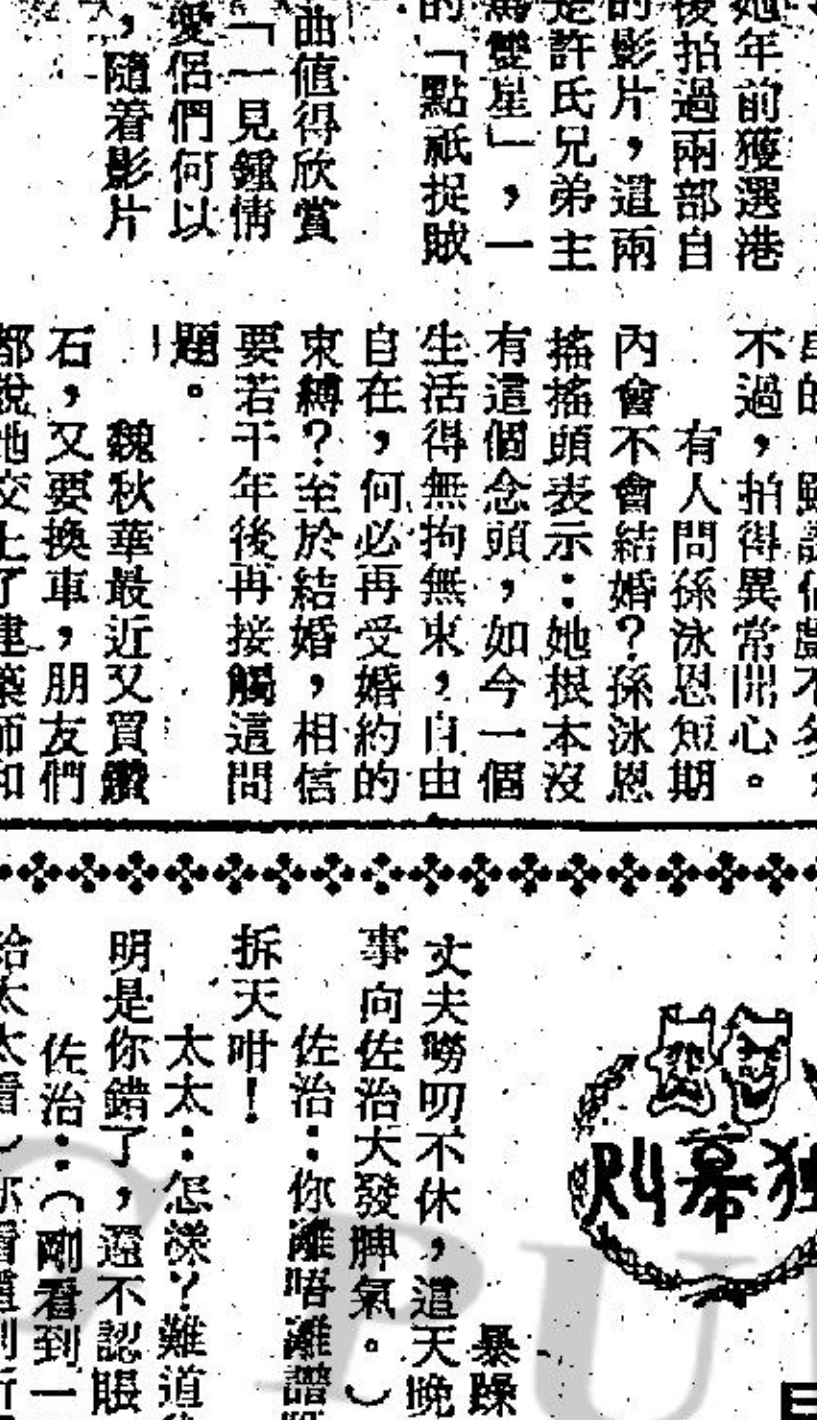 她年前獲選港
後拍過兩部自
的影片，這兩
是許氏兄弟主
雙星」，一
的「點祇捉賊
曲值得欣賞
「一見鍾情
愛侶們何以
，隨着影片
不過，拍得異常開心。
有人問孫泳恩短期
內會不會結婚？孫泳恩
搖搖頭表示：她根本沒
有這個念頭，如今一個
生活得無拘無束，自由
自在，何必再受婚約的
束縛？至於結婚，相信
要若干年後再接觸這問
題。
魏秋華最近又買鑽
石，又要換車，朋友們
都說她交上了建築師和
独幕剧
暴躁
丈夫嘮叨不休，這天晚
事向佐治大發脾氣。）
佐治：你離唔離譜
拆天咁！
太太：怎樣？難道
明是你錯了，還不認賬
佐治：（剛看到一
給太太看）你看這則新